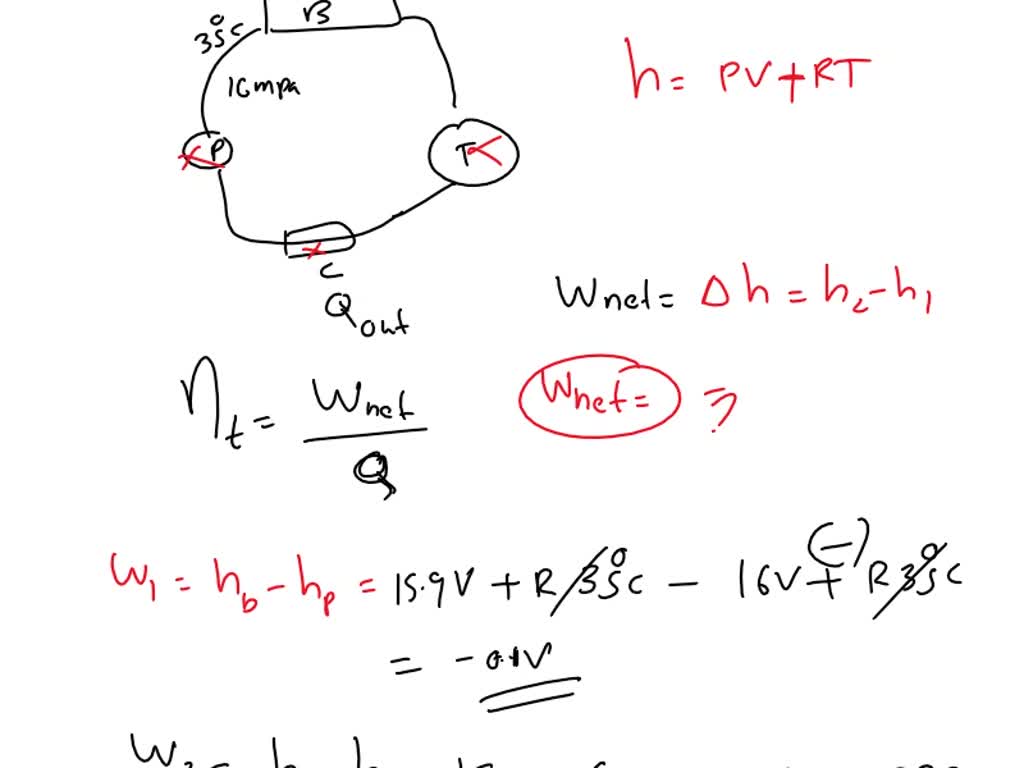 B
35°C
16mpa
h = PV + RT
P
T
C
Qout
Wnet = Δh = h2 - h1
ηt = Wnet / Q
Wnet = ?
W1 = hb - hp = 15.9V + R 35°C - 16V + (-) R 35°C
= -0.1V